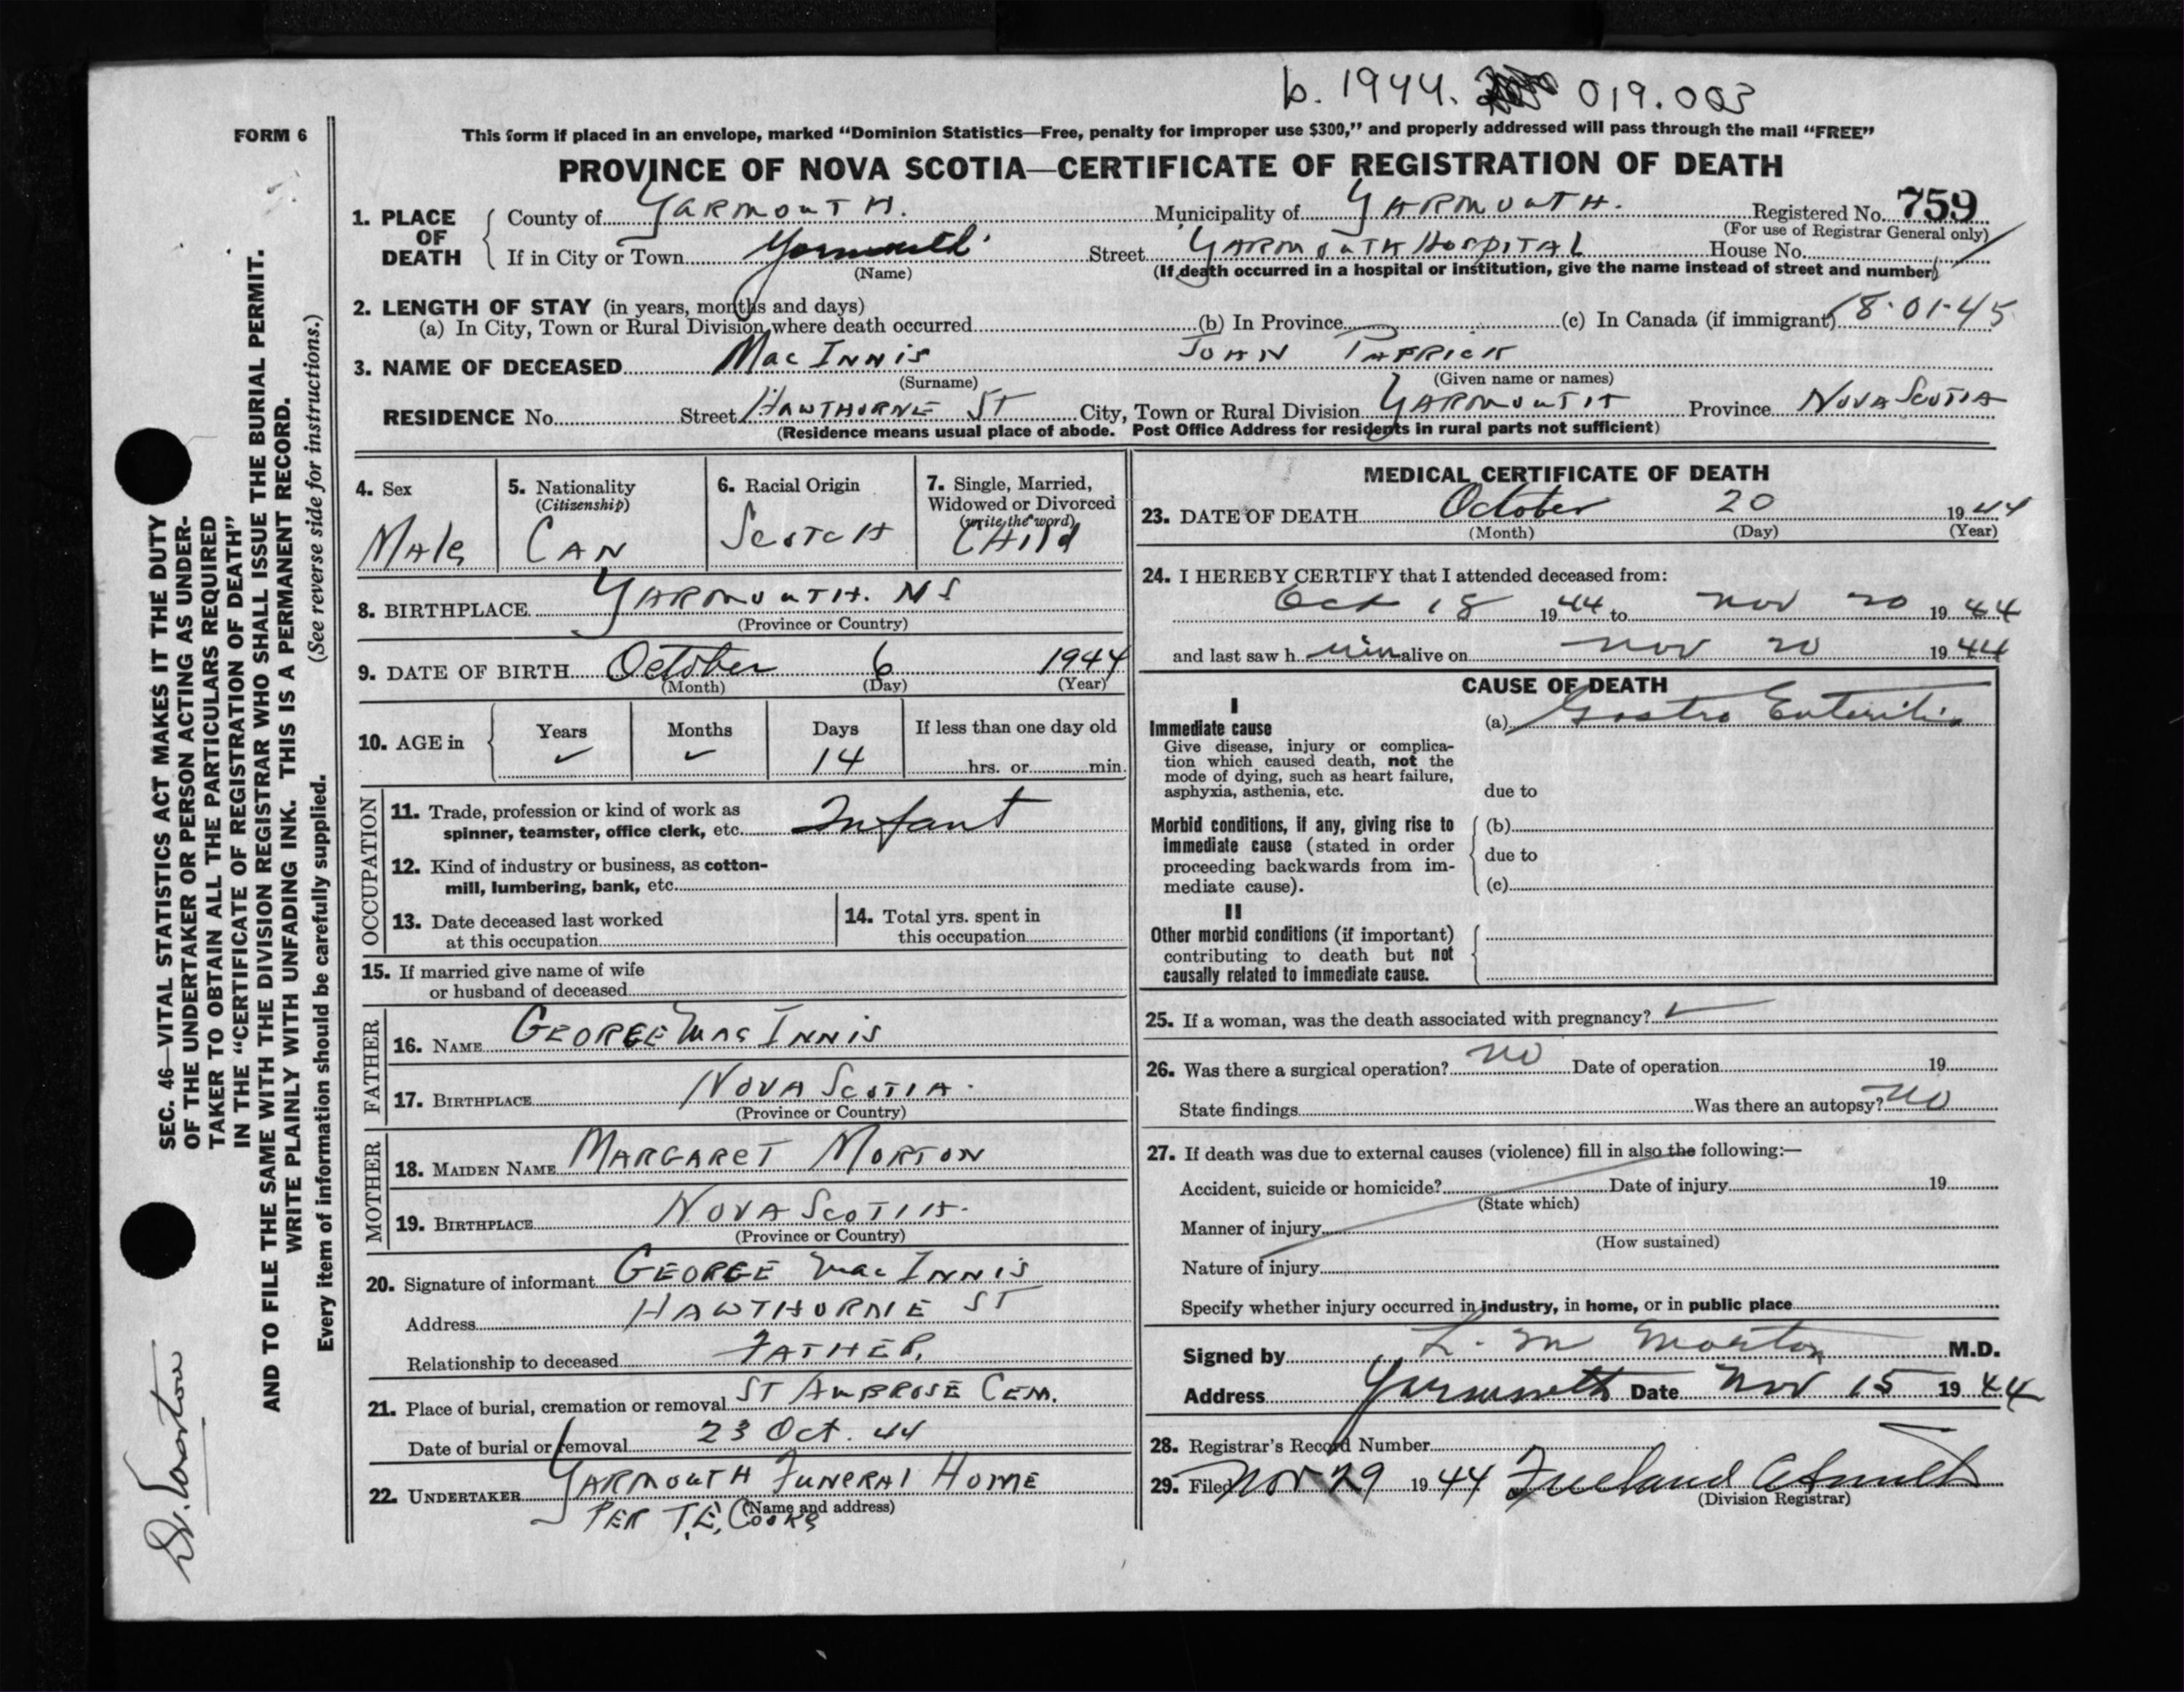 b. 1944. 019.003
FORM 6
This form if placed in an envelope, marked “Dominion Statistics—Free, penalty for improper use $300,” and properly addressed will pass through the mail “FREE”
PROVINCE OF NOVA SCOTIA—CERTIFICATE OF REGISTRATION OF DEATH
1. PLACE OF DEATH County of YARMOUTH. Municipality of YARMOUTH. Registered No. 759
(For use of Registrar General only)
If in City or Town Yarmouth Street YARMOUTH HOSPITAL House No.
(Name) (If death occurred in a hospital or institution, give the name instead of street and number)
2. LENGTH OF STAY (in years, months and days)
(a) In City, Town or Rural Division where death occurred (b) In Province (c) In Canada (if immigrant) 18-01-45
3. NAME OF DECEASED MacINNIS JOHN PATRICK
(Surname) (Given name or names)
RESIDENCE No. Street HAWTHORNE ST City, Town or Rural Division YARMOUTH Province NOVA SCOTIA
(Residence means usual place of abode. Post Office Address for residents in rural parts not sufficient)
4. Sex
Male
5. Nationality
(Citizenship)
CAN
6. Racial Origin
SCOTCH
7. Single, Married,
Widowed or Divorced
(write the word)
CHild
8. BIRTHPLACE YARMOUTH. NS
(Province or Country)
9. DATE OF BIRTH October 6 1944
(Month) (Day) (Year)
10. AGE in Years Months Days If less than one day old
✓ ✓ 14 hrs. or min.
OCCUPATION
11. Trade, profession or kind of work as
spinner, teamster, office clerk, etc. Infant
12. Kind of industry or business, as cotton-
mill, lumbering, bank, etc.
13. Date deceased last worked
at this occupation
14. Total yrs. spent in
this occupation
15. If married give name of wife
or husband of deceased
FATHER
16. NAME GEORGE MacINNIS
17. BIRTHPLACE NOVA SCOTIA.
(Province or Country)
MOTHER
18. MAIDEN NAME MARGARET MORTON
19. BIRTHPLACE NOVA SCOTIA.
(Province or Country)
20. Signature of informant GEORGE MacINNIS
Address HAWTHORNE ST
Relationship to deceased FATHER.
21. Place of burial, cremation or removal ST AMBROSE CEM.
Date of burial or removal 23 Oct. 44
22. UNDERTAKER YARMOUTH FUNERAL HOME
(Name and address)
PER T.E. COOKE
MEDICAL CERTIFICATE OF DEATH
23. DATE OF DEATH October 20 1944
(Month) (Day) (Year)
24. I HEREBY CERTIFY that I attended deceased from:
Oct 18 1944 to Nov 20 1944
and last saw h im alive on Nov 20 1944
CAUSE OF DEATH
I
Immediate cause
Give disease, injury or complica-
tion which caused death, not the
mode of dying, such as heart failure,
asphyxia, asthenia, etc.
(a) Gastro Enteritis
due to
Morbid conditions, if any, giving rise to
immediate cause (stated in order
proceeding backwards from im-
mediate cause).
(b)
due to
(c)
II
Other morbid conditions (if important)
contributing to death but not
causally related to immediate cause.
25. If a woman, was the death associated with pregnancy? ✓
26. Was there a surgical operation? no Date of operation 19
State findings Was there an autopsy? no
27. If death was due to external causes (violence) fill in also the following:—
Accident, suicide or homicide? Date of injury 19
(State which)
Manner of injury
(How sustained)
Nature of injury
Specify whether injury occurred in industry, in home, or in public place
Signed by L. M Morton M.D.
Address Yarmouth Date Nov 15 1944
28. Registrar's Record Number
29. Filed Nov 29 1944
(Division Registrar)
SEC. 46—VITAL STATISTICS ACT MAKES IT THE DUTY
OF THE UNDERTAKER OR PERSON ACTING AS UNDER-
TAKER TO OBTAIN ALL THE PARTICULARS REQUIRED
IN THE “CERTIFICATE OF REGISTRATION OF DEATH”
AND TO FILE THE SAME WITH THE DIVISION REGISTRAR WHO SHALL ISSUE THE BURIAL PERMIT.
WRITE PLAINLY WITH UNFADING INK. THIS IS A PERMANENT RECORD.
(See reverse side for instructions.)
Every item of information should be carefully supplied.
Dr. Morton